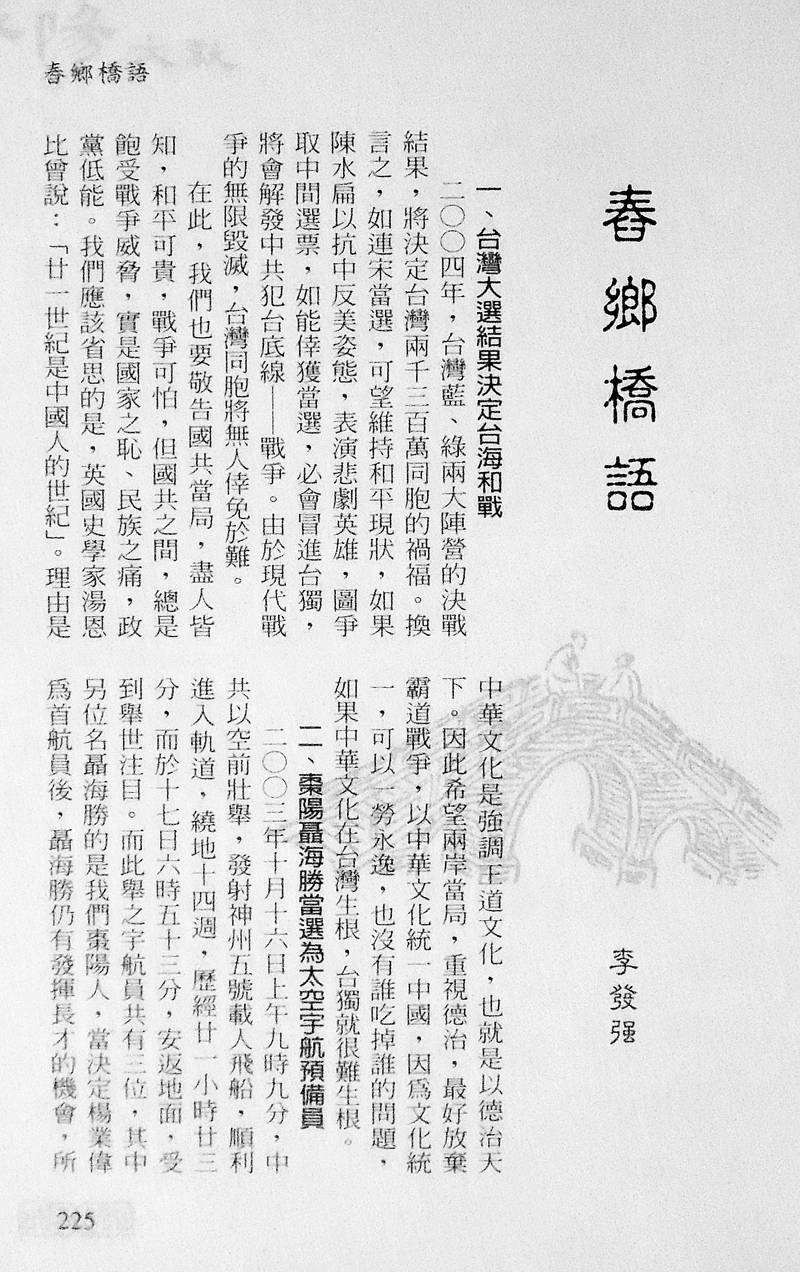 舂鄉橋語
舂鄉橋語
李發强
一、台灣大選結果決定台海和戰
二〇〇四年，台灣藍、綠兩大陣營的決戰
結果，將決定台灣兩千三百萬同胞的禍福。換
言之，如連宋當選，可望維持和平現狀，如果
陳水扁以抗中反美姿態，表演悲劇英雄，圖爭
取中間選票，如能倖獲當選，必會冒進台獨，
將會解發中共犯台底線——戰爭。由於現代戰
爭的無限毀滅，台灣同胞將無人倖免於難。
在此，我們也要敬告國共當局，盡人皆
知，和平可貴，戰爭可怕，但國共之間，總是
飽受戰爭威脅，實是國家之恥、民族之痛，政
黨低能。我們應該省思的是，英國史學家湯恩
比曾說：「廿一世紀是中國人的世紀」。理由是
中華文化是強調王道文化，也就是以德治天
下。因此希望兩岸當局，重視德治，最好放棄
霸道戰爭，以中華文化統一中國，因爲文化統
一，可以一勞永逸，也沒有誰吃掉誰的問題，
如果中華文化在台灣生根，台獨就很難生根。
二、棗陽聶海勝當選為太空宇航預備員
二〇〇三年十月十六日上午九時九分，中
共以空前壯舉，發射神州五號載人飛船，順利
進入軌道，繞地十四週，歷經廿一小時廿三
分，而於十七日六時五十三分，安返地面，受
到舉世注目。而此舉之宇航員共有三位，其中
另位名聶海勝的是我們棗陽人，當決定楊業偉
爲首航員後，聶海勝仍有發揮長才的機會，所
225